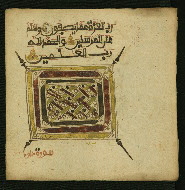 ربك رب العزة عما يصفون وسلم
على المرسلين والحمد لله
رب العلمين